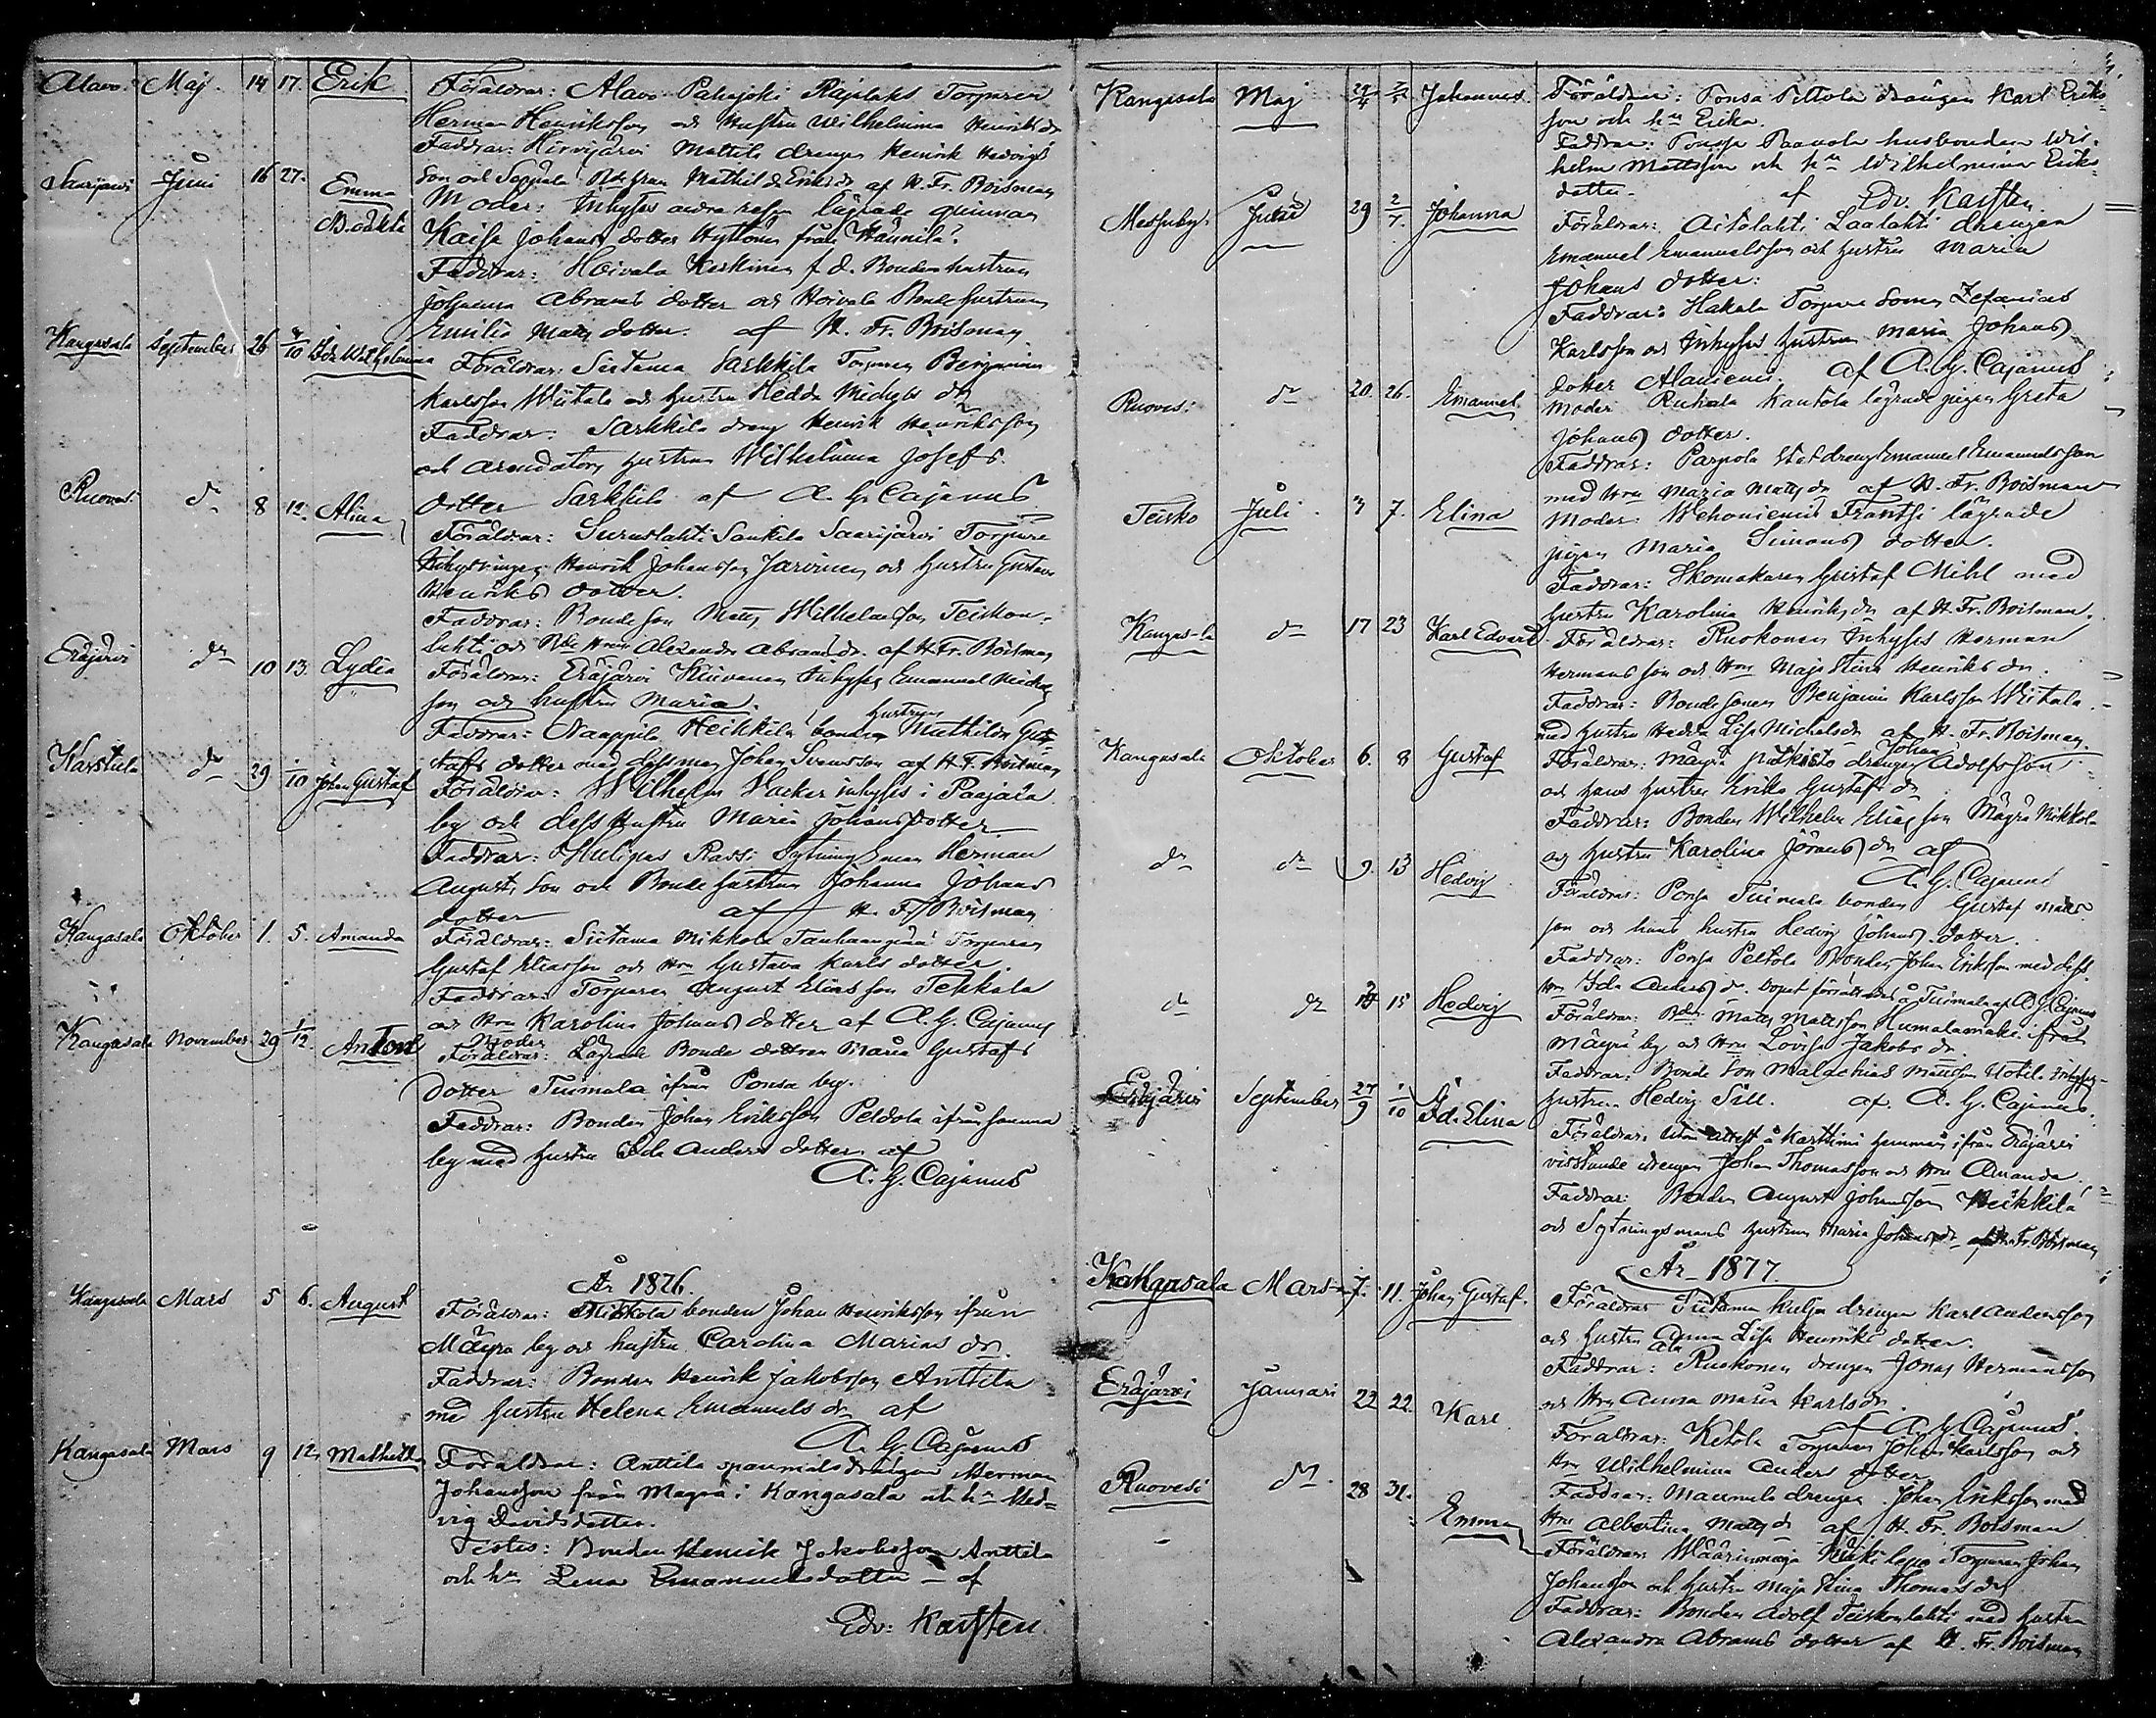 Alavo. Maj. 14 17. Erik Föräldrar: Alavo Pahajoki Rajalaks Torparen
Herman Henriksson och Hustru Wilhelmina Henriks dr
Faddrar: Hirvijärvi Mattila drengen Henrik Hedvigs
Saarijärvi Juni 16 27. Emma son och af H. Fr. Boisman
B.odkta Moder: Inhyses andra resan lägrade qvinnan
Kaisa Johans dotter Hyttönen från Hännilä.
Faddrar: Hoivala Keskinen f. d. Bonden hustrun
Johanna Abrams dotter och Hoivala Bonde hustrun
Emilia Matts dotter. af H. Fr. Boisman
Kangasala September 26 4/10 Ida Wilhelmina Föräldrar: Siitama Sarkkila Torparen Benjamin
Karlsson Wiitala och hustru Hedda Michels dr
Faddrar: Sarkkila dreng Henrik Henriksson
och arendatorn hustrun Wilhelmina Josefs
Ruoves: dr 8 12. Alina dotter Sarkkila af A. G. Cajanus
Föräldrar: Surustahti Sankila Saarijärvi Torpare
Inhysingen Henrik Johansson Jarvinen och hustru Gustava
Henriks dotter.
Faddrar: Bondeson Matts Wilhelmsson Teiskon-
lahti och Bde Hrn Alexandra Abrams dr. af H. Fr. Boisman
Eräjärvi dr 10 13. Lydia Föräldrar: Eräjärvi Kiuvanen Inhyses Emanuel Michels
son och hustru Maria.
Faddrar: Naappila Heikkila bonden hustrun Mathilda Gus-
Karstula dr 29 1/10 Johan Gustaf tafs dotter med dess man Johan Svensson af H. F. Boisman
Föräldrar: Wilhelm Wacker inhyses i Paajala
by och dess Hustru Maria Johans dotter
Faddrar: Huligas Rassi Sytningsman Herman
Augusts son och Bonde hustrun Johanna Johans
dotter af H. F. Boisman
Kangasala Oktober 1. 5. Amanda Föräldrar: Siitama Mikkola Tanhaanpää Torparen
Gustaf Eliasson och Hru Gustava Karls dotter.
Faddrar: Torparen August Eliasson Tekkala
och Hru Karolina Johans dotter af A. G. Cajanus
Kangasala November 29 1/12. Anton Föräldrar: Moder Lägrade Bonde dottren Maria Gustafs
dotter Tuimala ifrån Ponsa by.
Faddrar: Bonden Johan Eriksson Peltola ifrån samma
by med hustru Ida Anders dotter af
A. G. Cajanus
År 1876.
Kangasala Mars 5 6. August Föräldrar: Mikkola bonden Johan Henriksson ifrån
Mäyrä by och hustru Carolina Marias dr.
Faddrar: Bonden Henrik Jakobsson Anttila
med hustru Helena Emanuels dr af
A. G. Cajanus
Kangasala Mars 9 12. Mathilda Föräldrar: Anttila spanmålsdrängen Herman
Johansson från Mayrä i Kangasala och hn Hed-
vig Davidsdotter.
Testes: Bonden Henrik Jakobsson Anttila
och hn Lena Emanuelsdotter - af
Edv: Karsten.
Kangasala Maj 29/4 7/5 Johannes Föräldrar: Ponsa Peltola drängen Karl Eriks-
son och hn Erika.
Faddrar: Ponsa Paavola husbonden Wil-
helm Mattsson och hn Wilhelmina Eriks-
dotter. af Edv. Karsten
Messuby Juni 29 2/7. Johanna Föräldrar: Aitolahti Laalahti drengen
Emanuel Emanuelsson och hustru Maria
Johans dotter.
Faddrar: Hakala Torpare Sonen Zefanias
Karlsson och Inhyses hustrun Maria Johans
dotter Alanienu. af A. G. Cajanus
Ruovesi dr 20. 26. Emanuel Moder: Ruhala Kantola lägrade pigan Greta
Johans dotter.
Faddrar: Parpola Statdreng Emanuel Emanuelsson
med Hru Maria Matts dr af H. Fr. Boisman
Teisko Juli 3 7. Elina Moder: Wehoniemi Frantsi lägrade
pigan Maria Simons dotter.
Faddrar: Skomakaren Gustaf Mihl med
hustru Karolina Henriks dr af H. Fr. Boisman.
Kangas-la dr 17 23 Karl Edvard Föräldrar: Ruokonen Inhyses Herman
Hermansson och Hru Maja Stina Henriks dr.
Faddrar: Bondesonen Benjamin Karlsson Wiitala
med hustru Hedda Lisa Michelsdr af H. Fr. Boisman.
Kangasala Oktober 6. 8 Gustaf Föräldrar: Mäyrä Pitkisto drengen Johan Adolfsson
och hans hustru Erika Gustafs dr
Faddrar: Bonden Wilhelm Eliasson Mäyrä Mikkola
och hustru Karolina Jörans dr af
A. G. Cajanus
dr dr 9. 13 Hedvig Föräldrar: Ponsa Tuimala bonden Gustaf Matts-
son och hans hustru Hedvig Johans dotter.
Faddrar: Ponsa Peltola Bonden Johan Eriksson med dess
Hru Ida Anders dr. Dopet förrättades å Tuimala af A. G. Cajanus
dr dr 15 Hedvig Föräldrar: Bden Matts Mattsson Humalamäki ifrån
Mäyrä by och Hru Lovisa Jakobs dr.
Faddrar: Bonde Son Malachias Mattsson Uotila Inhyses
hustrun Hedvig Sill. af. A. G. Cajanus.
Eräjärvi September 27/9 1/10 Ida Elina Föräldrar: Utan attest å Karttimi hemman ifrån Eräjärvi
vistande drengen Johan Thomasson och Hru Amanda.
Faddrar: Bonden August Johansson Heikkila
och Sytningsmans hustrun Maria Johans dr af H. Fr. Boisman
År 1877.
Kahgasala Mars 7. 11. Johan Gustaf. Föräldrar Siitama Kulju drengen Karl Andersson
och hustru Anna Lisa Henriks dotter.
Faddrar: Ala Ruokonen drengen Jonas Hermansson
och Hru Anna Maria Karls dr.
af A. G. Cajanus.
Eräjärvi Januari 22 22 Karl Föräldrar: Ketola Torparen Johan Karlsson och
Hru Wilhelmina Anders dotter
Faddrar: Maunula drengen Johan Eriksson med
Hru Albertina Matts dr af H. Fr. Boisman
Ruovesi dr. 28 31. Emma Föräldrar: Wäärinmaja Torparen Johan
Johansson och hustru Maja Stina Thomas dr
Faddrar: Bonden Adolf Teiskonlahti med hustru
Alexandra Abrams dotter af H. Fr. Boisman